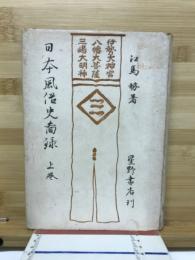 江馬務著
伊勢大神宮
八幡大菩薩
三嶋大明神
日本風俗史図録 上巻
星野書店刊